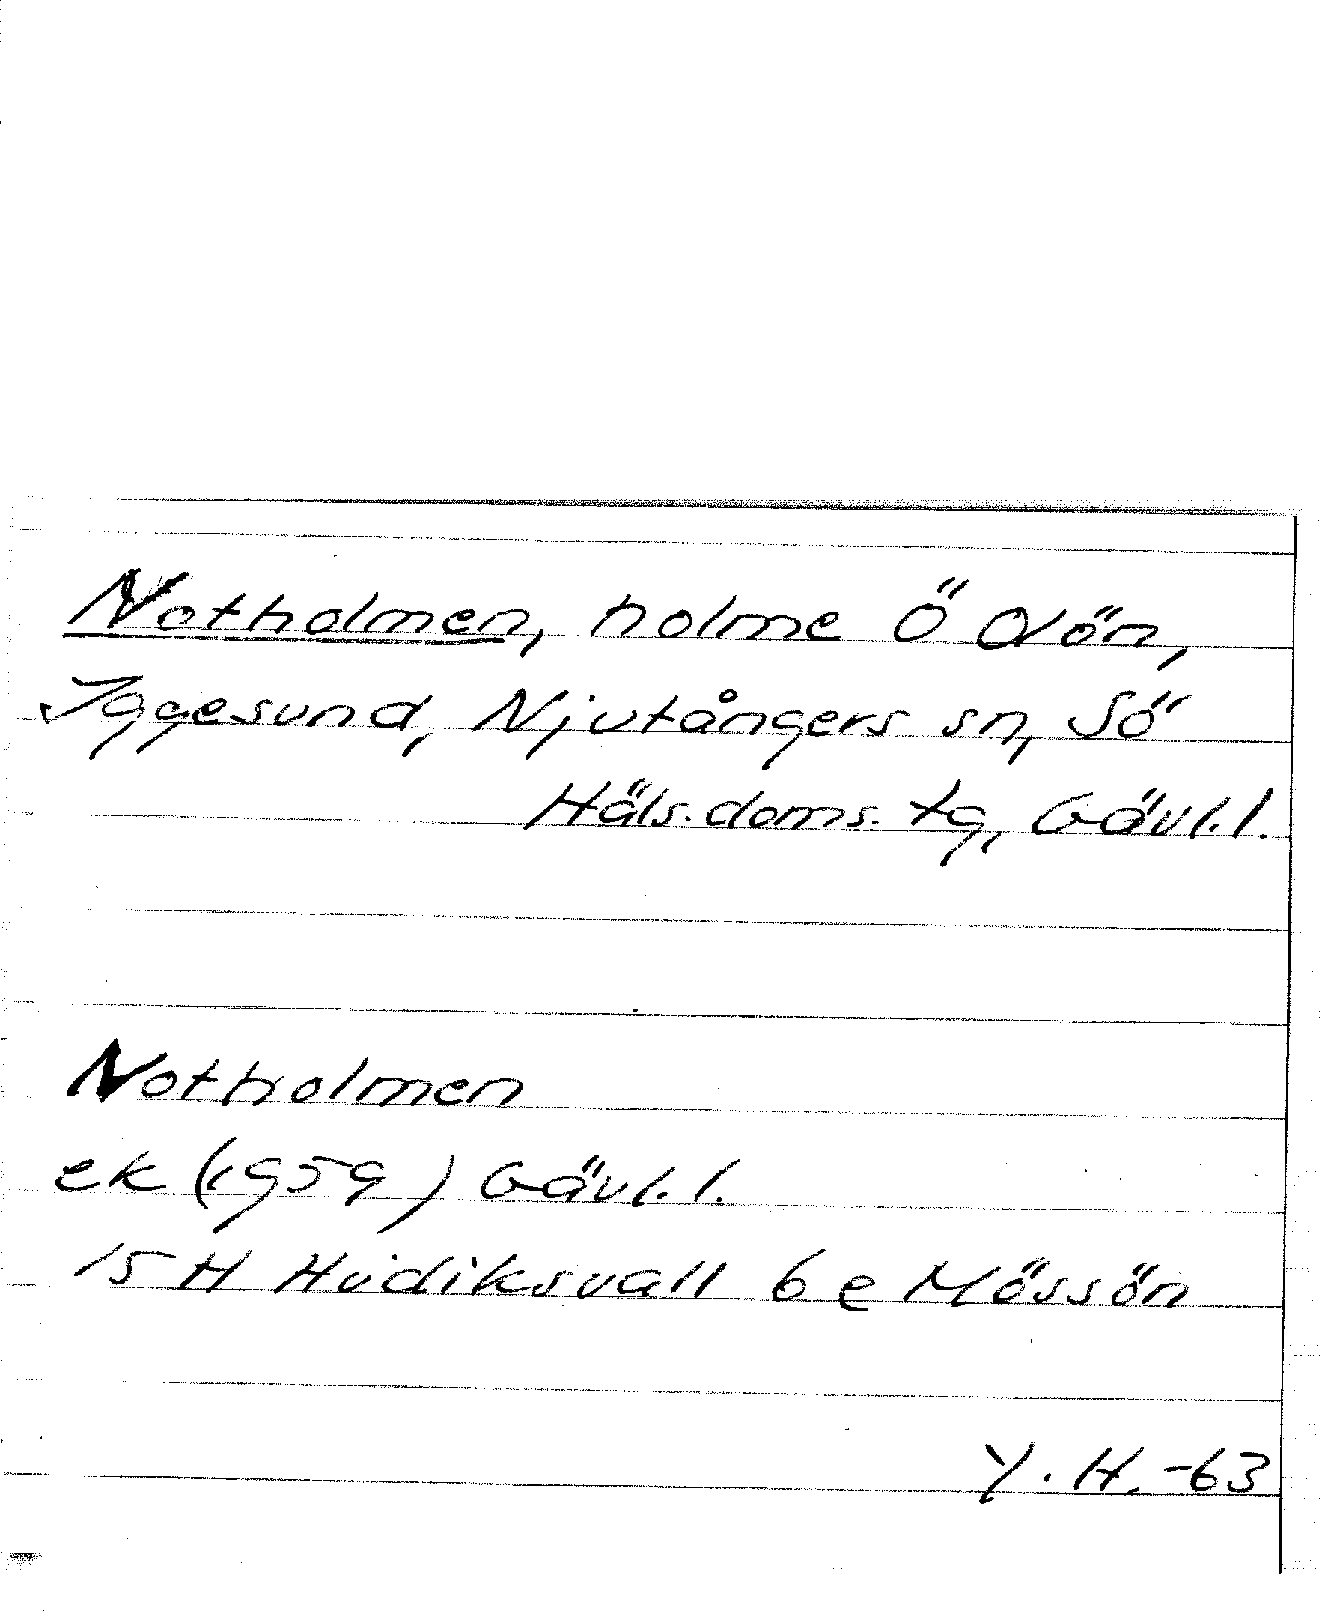 Notholmen, holme Ö Olön,
Iggesund, Njutångers sn, Sö
Häls. doms. tg, Gävl. l.
Notholmen
ek (1959) Gävl. l.
15 H Hudiksvall 6 e Mössön
Y. H. -63